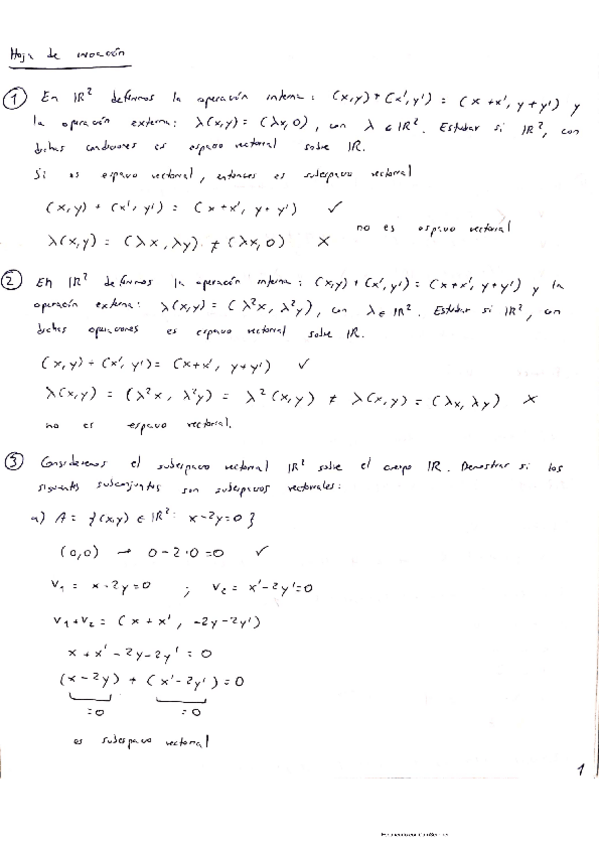 Hoja de inducción
① En IR² definimos la operación interna: (x,y)+(x',y') = (x+x', y+y') y
la operación externa: λ(x,y) = (λx,0), con λ ∈ IR². Estudiar si IR², con
dichas condiciones es espacio vectorial sobre IR.
Si es espacio vectorial, entonces es subespacio vectorial
(x,y) + (x',y') = (x+x', y+y') ✓
no es espacio vectorial
λ(x,y) = (λx, λy) ≠ (λx,0) X
② En IR² definimos la operación interna: (x,y)+(x',y') = (x+x', y+y') y la
operación externa: λ(x,y) = (λ²x, λ²y), con λ ∈ IR². Estudiar si IR², con
dichas operaciones es espacio vectorial sobre IR.
(x,y) + (x',y') = (x+x', y+y') ✓
λ(x,y) = (λ²x, λ²y) = λ²(x,y) ≠ λ(x,y) = (λx, λy) X
no es espacio vectorial.
③ Consideremos el subespacio vectorial IR² sobre el cuerpo IR. Demostrar si los
siguientes subconjuntos son subespacios vectoriales:
a) A = {(x,y) ∈ IR²: x-2y=0}
(0,0) → 0-2·0=0 ✓
v₁ = x-2y=0 ; v₂ = x'-2y'=0
v₁+v₂ = (x+x', -2y-2y')
x+x'-2y-2y' = 0
(x-2y) + (x'-2y') = 0
=0 =0
es subespacio vectorial
1